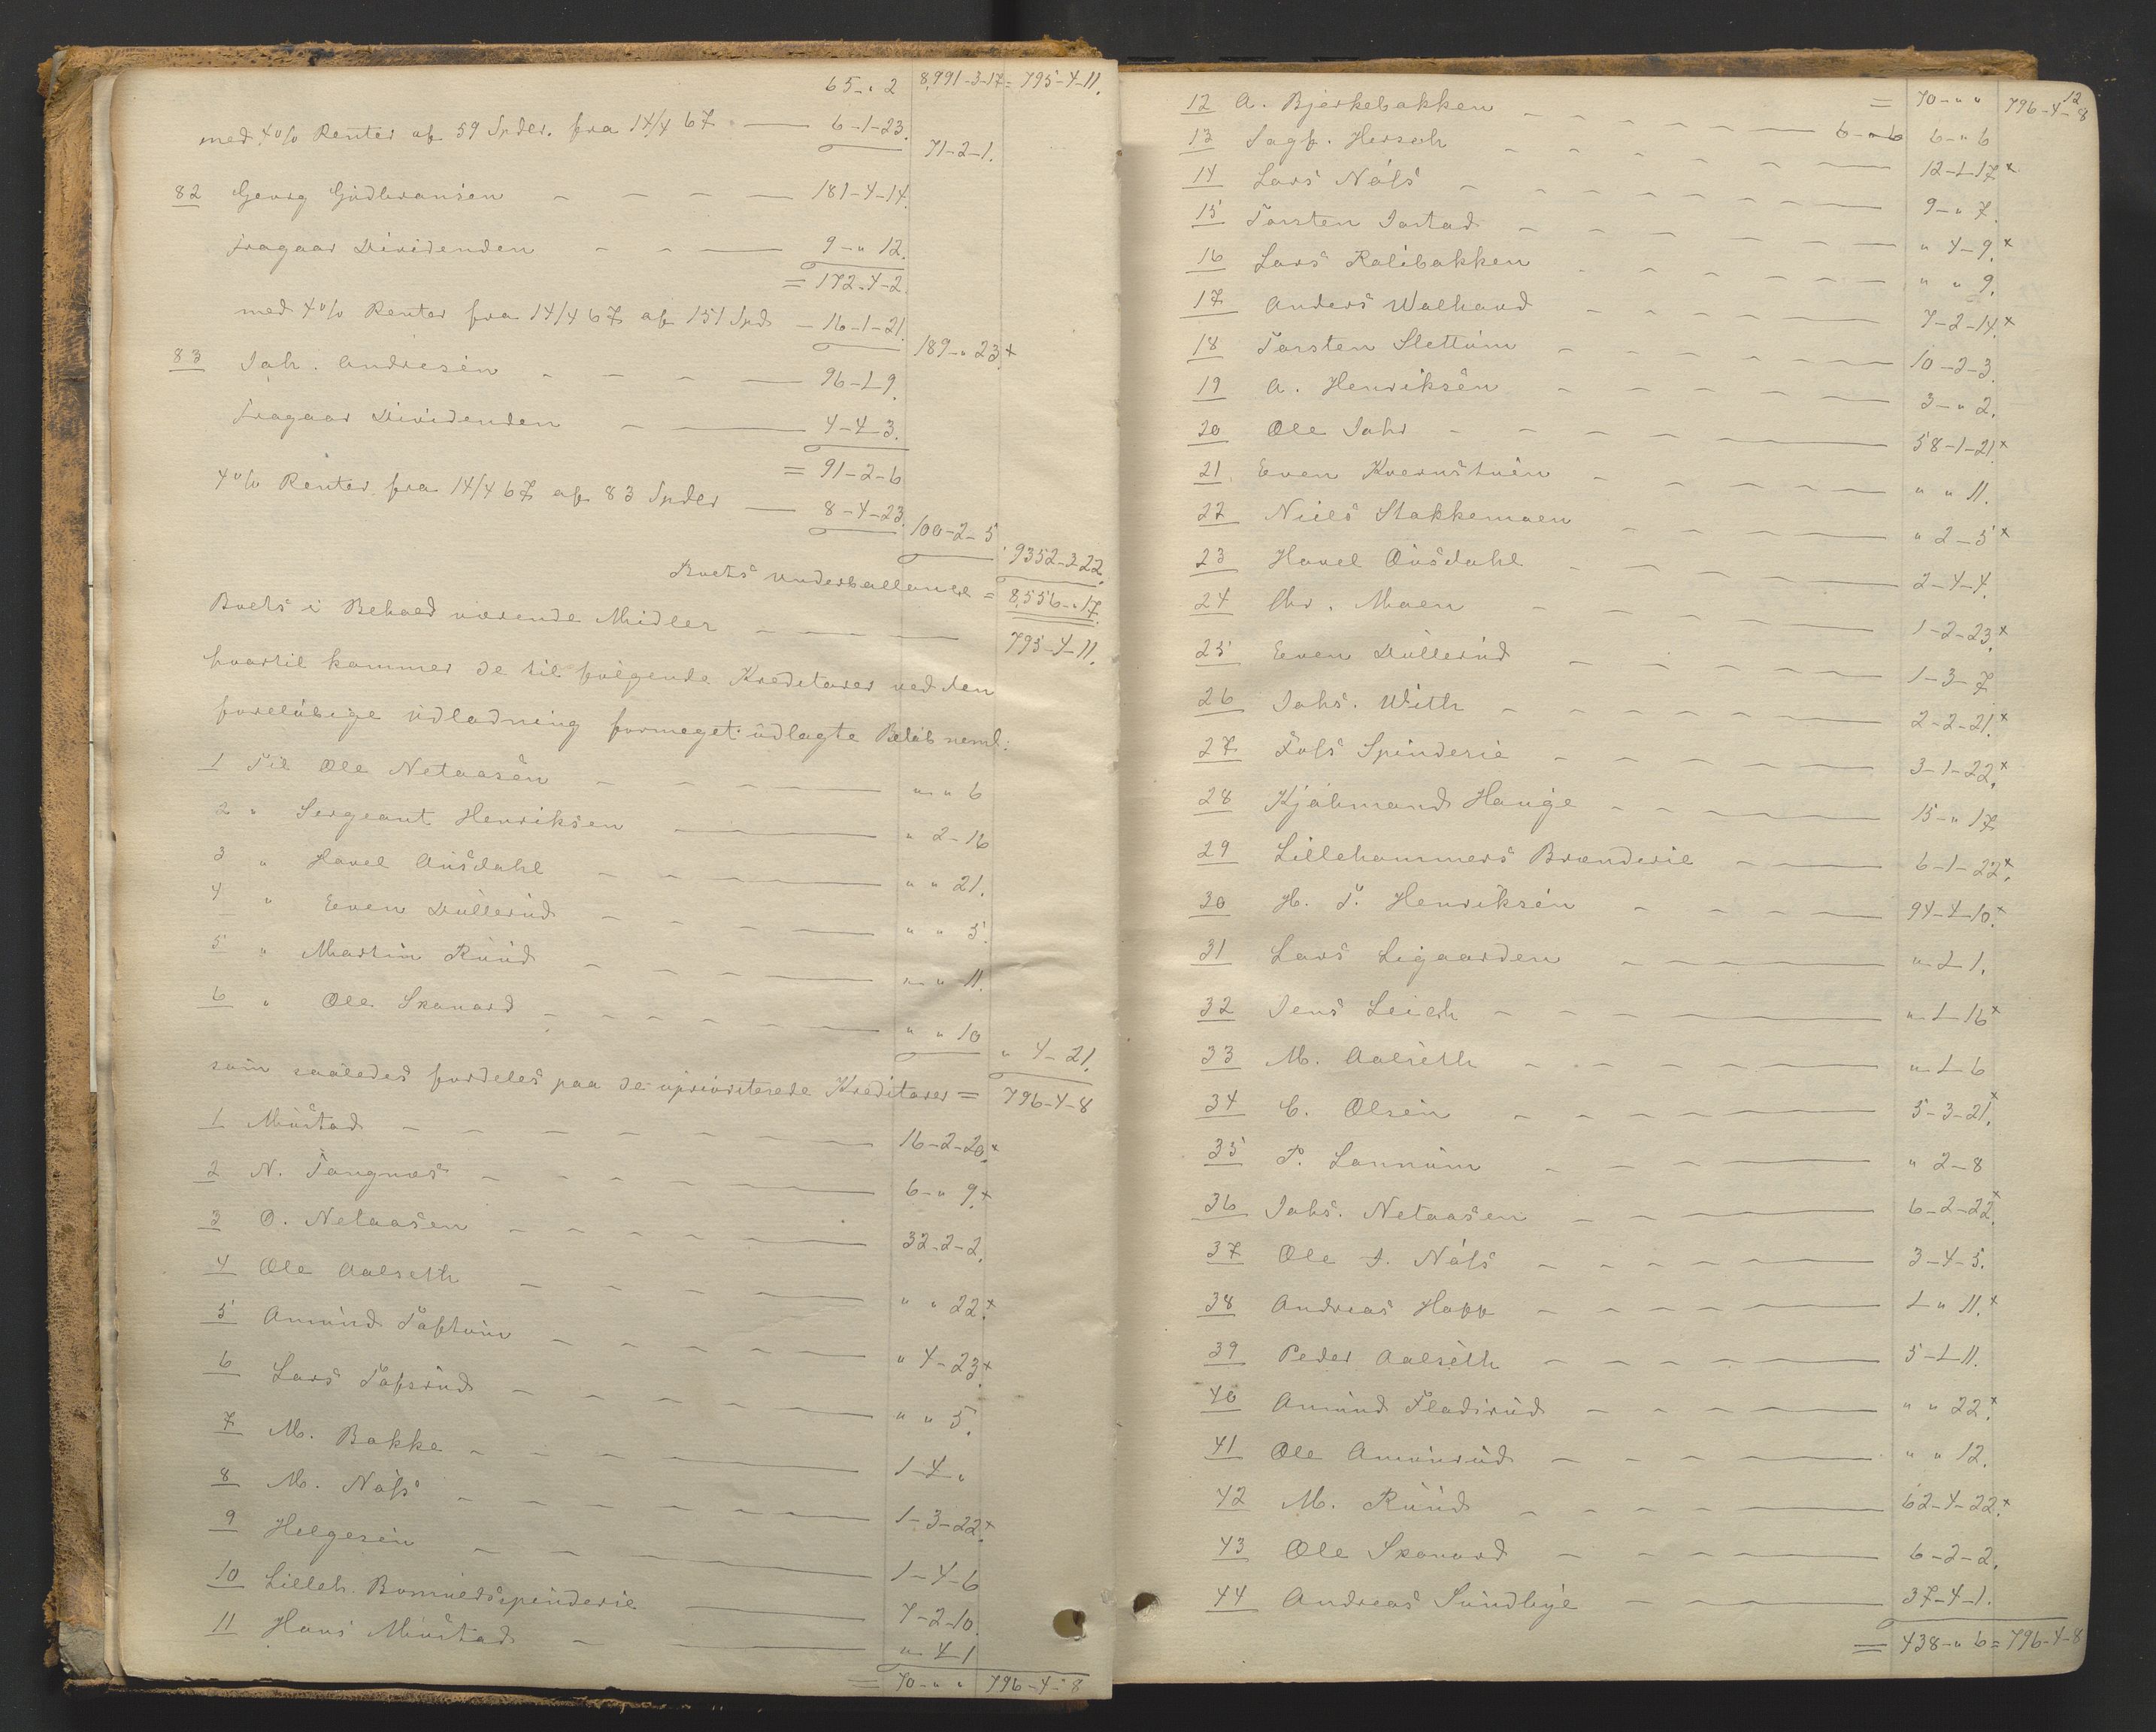 65 - " 2 8,991-3-17 = 795-4-11.
med 4% Renter af 59 Spder. fra 14/4 67 — 6-1-23.
71-2-1.
82 Georg Gudbransen — 181-4-14.
fragaar Dividenden — 9-" 12.
= 172-4-2.
med 4% Renter fra 14/4 67 af 151 Spd — 16-1-21.
189-" 23.x
83 Joh. Andresen — 96-1-9.
fragaar Dividenden — 4-4-3.
= 91-2-6
4% Renter fra 14/4 67 af 83 Spder — 8-4-23.
100-2-5
9352-3-22.
Boets underballance = 8,556-"17.
Boets i Behold værende Midler — 795-4-11.
hvortil kommer de til følgende Kreditorer ved den
foreløbige udlodning formeget udlagte Beløb neml:
1 Til Ole Netaasen — " " 6
2 " Sergeant Henriksen — " 2-16
3 " Havel Ousdahl — " " 21.
4 " Even Dullerud — " " 5.
5 " Martin Ruud — " " 11.
6 " Ole Skanord — " " 10
" 4-21.
som saaledes fordeles paa de uprioriterede Kreditorer = 796-4-8
1 Mustad — 16-2-20.x
2 N. Tangnæs — 6-" 9.x
3 O. Netaasen — 32-2-2.
4 Ole Aalseth — " " 22.x
5 Amund Toftum — " 4-23.x
6 Lars Tofsrud — " " 5.
7 M. Bakke — 1-4 "
8 M. Næss — 1-3-22.x
9 Helgesen — 1-4-6
10 Lilleh. Bomuldsspinderie — 7-2-10.
11 Hans Mustad — " 4-1
= 70-" " 796-4-8
12 A. Bjerkebakken = 70-" " 796-4-8
13 Sagf. Hersch — 6-"6 6-" 6
14 Lars Næss — 12-1-17x
15 Torsten Sortad — 9-" 7.
16 Lars Rolibakken — " 4-9.x
17 Anders Walhaud — " " 9.
18 Torsten Slettum — 7-2-14.x
19 A. Henriksen — 10-2-3.
20 Ole Jahr — 3-" 2.
21 Even Kvernstuen — 58-1-21.x
22 Niels Stakkemoen — " " 11.
23 Havel Ousdahl — " 2-5x
24 Chr. Moen — 2-4-4.
25 Even Dullerud — 1-2-23.x
26 Johs. With — 1-3-7
27 Fols Spinderie — 2-2-21.x
28 Kjøbmand Hauge — 3-1-22.x
29 Lillehammers Brænderie — 15-" 17
30 H. T. Henriksen — 6-1-22.x
31 Lars Ligaarden — 94-4-10.x
32 Jens Leich — " 1-1.
33 M. Aalseth — " 1-16x
34 C. Olsen — " 1-6
35 P. Lannum — 5-3-21.x
36 Johs. Netaasen — " 2-8
37 Ole J. Næss — 6-2-22.x
38 Andreas Hopp — 3-4-5.
39 Peder Aalseth — 1 " 11.x
40 Amund Fladsrud — 5-1-11.
41 Ole Amunrud — " " 22.x
42 M. Ruud — " " 12.
43 Ole Skanord — 62-4-22.x
44 Andreas Sundbye — 6-2-2.
37-4-1.
= 438-" 6 = 796-4-8